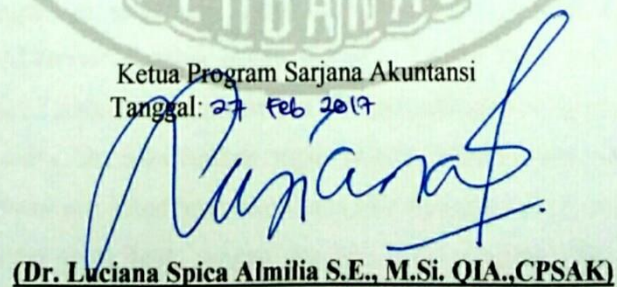 Ketua Program Sarjana Akuntansi
Tanggal: 27 Feb 2017
(Dr. Luciana Spica Almilia S.E., M.Si. QIA.,CPSAK)